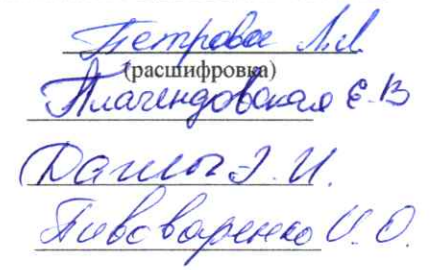 Петрова Л.Л
(расшифровка)
Плачендовская Е.В
Э.И.
Пивоваренко И.О.